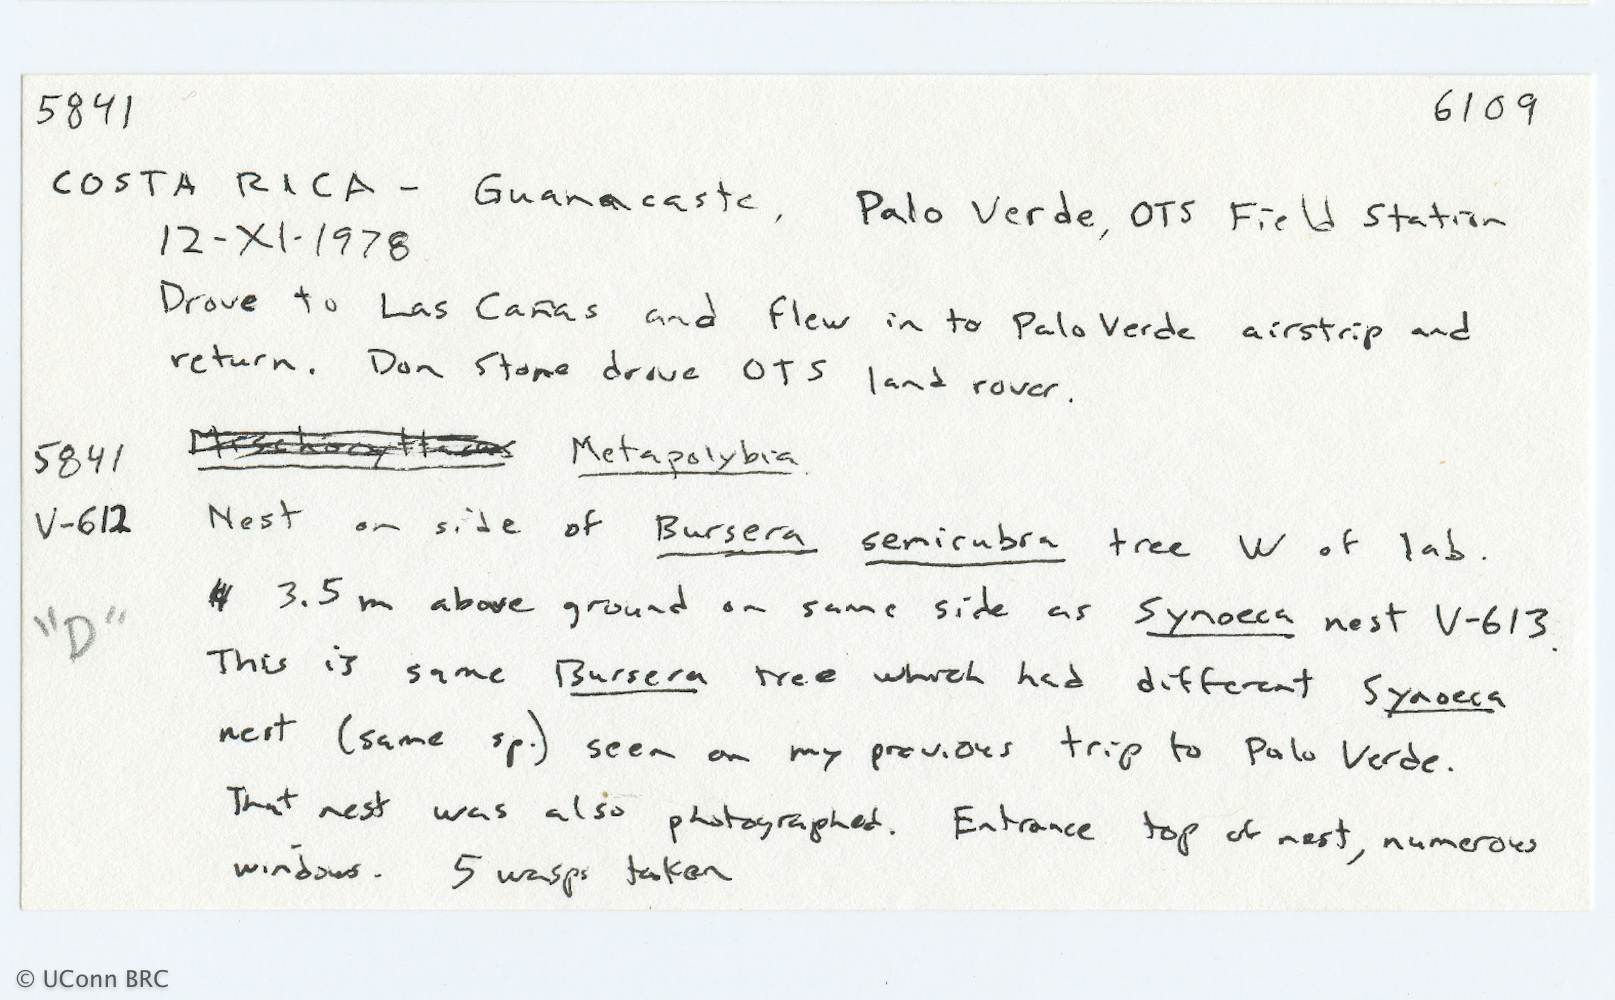 5841 6109
COSTA RICA - Guanacaste, Palo Verde, OTS Field Station
12-XI-1978
Drove to Las Cañas and flew in to Palo Verde airstrip and
return. Don Stone drove OTS land rover.
5841 Mischocyttarus Metapolybia
V-612 Nest on side of Bursera semirubra tree W of lab.
3.5 m above ground on same side as Synoeca nest V-613.
"D"
This is same Bursera tree which had different Synoeca
nest (same sp.) seen on my previous trip to Palo Verde.
That nest was also photographed. Entrance top of nest, numerous
windows. 5 wasps taken
© UConn BRC